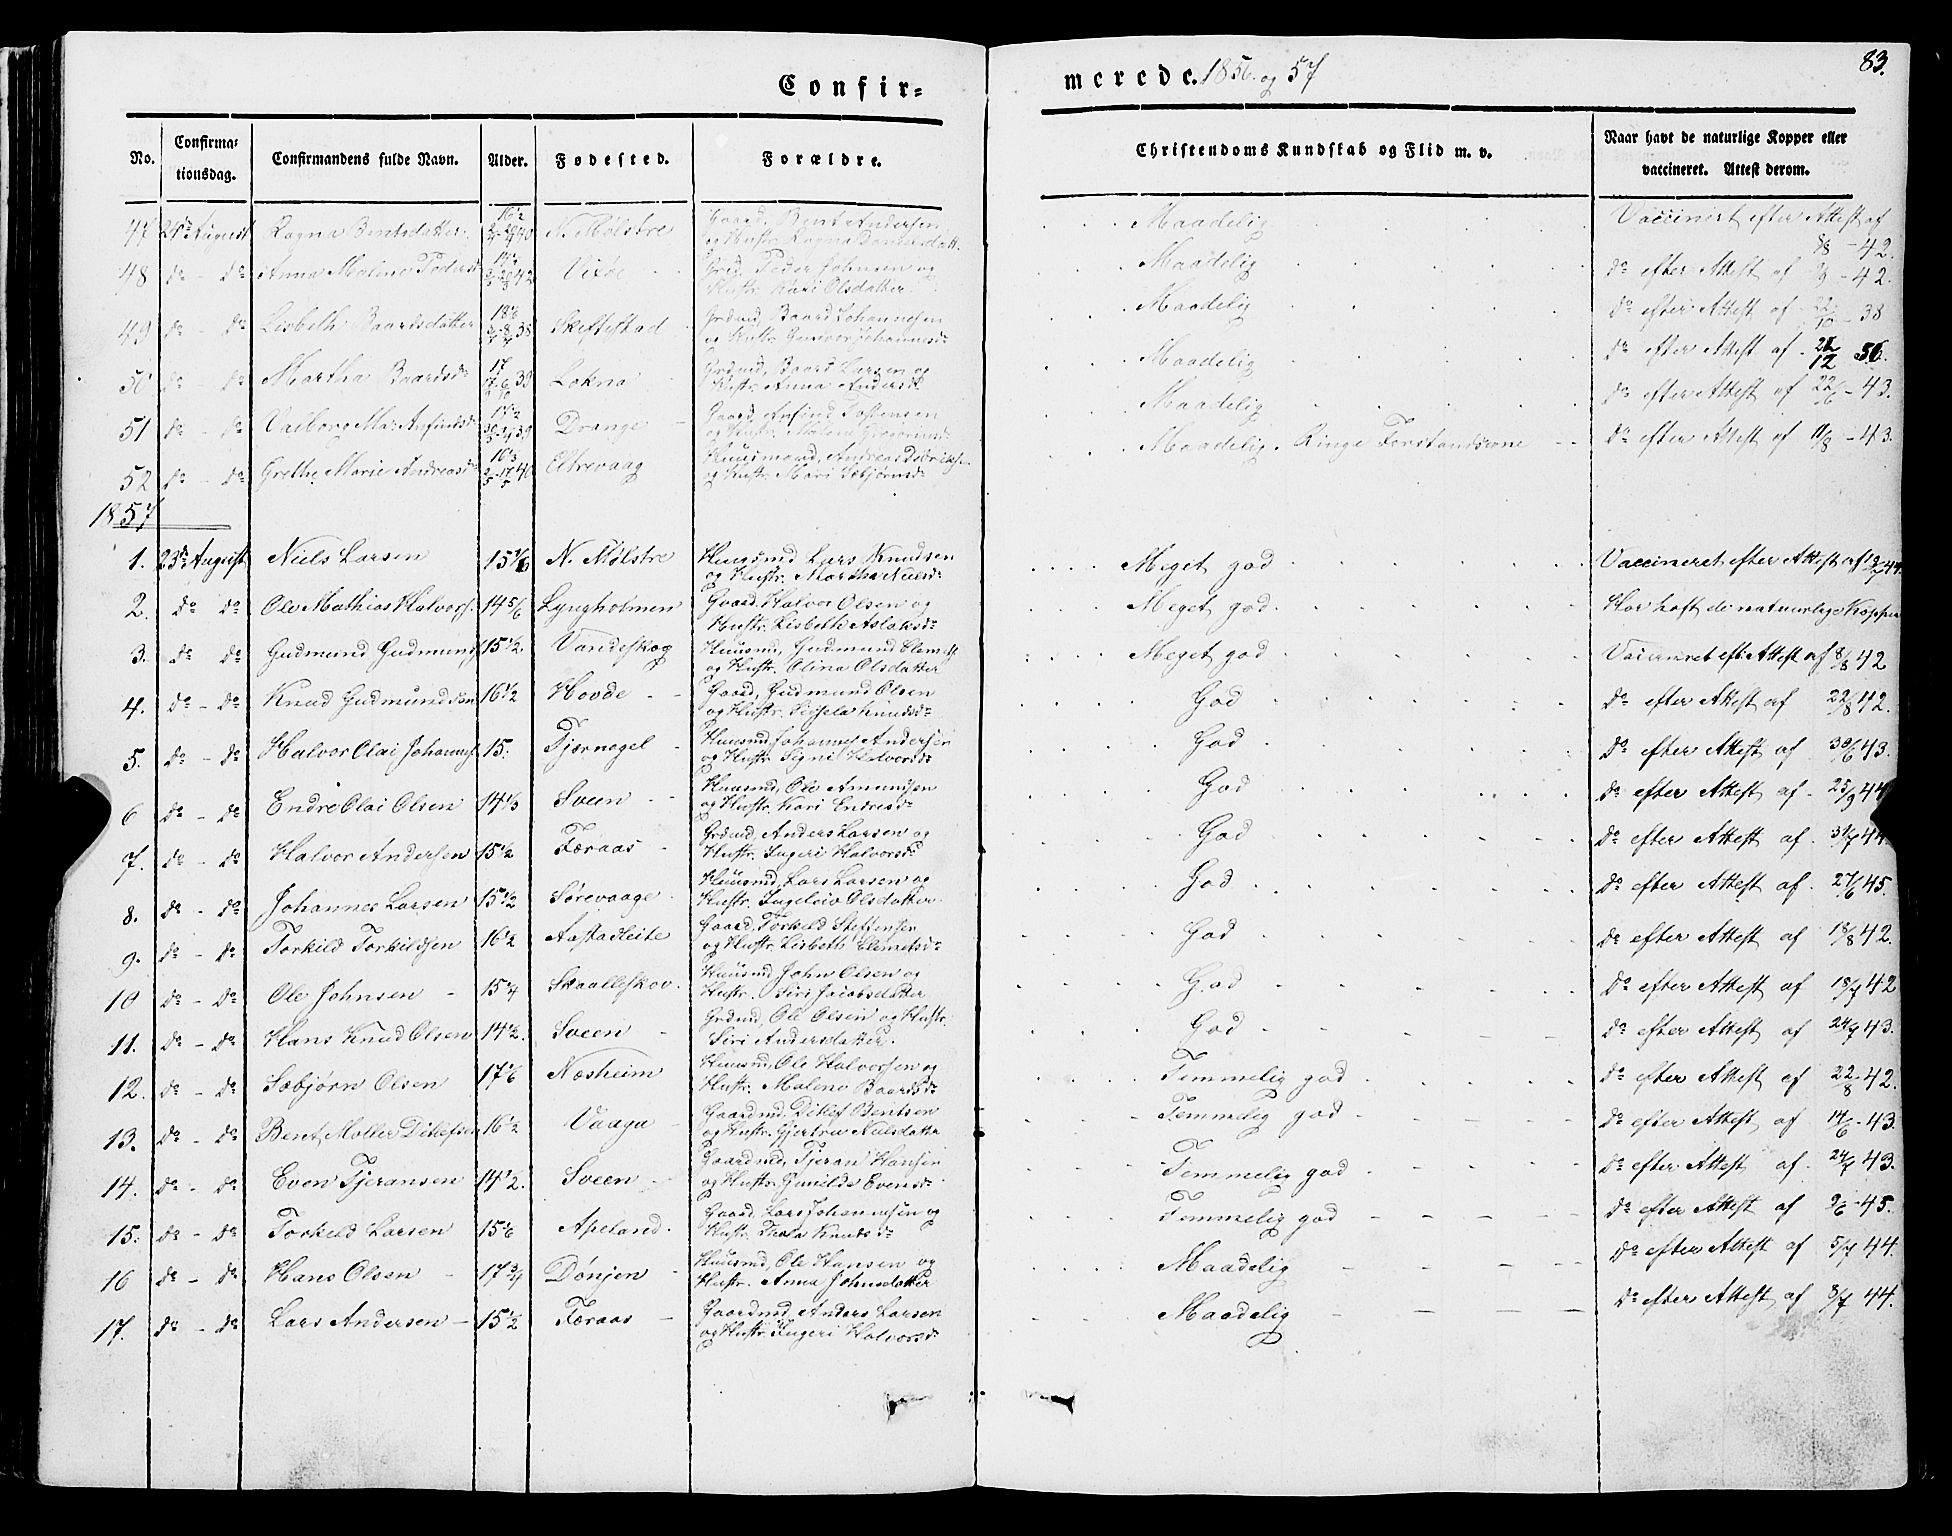 83.
Confir=
merede. 1856. og 57
No.
Confirma=
tionsdag.
Confirmandens fulde Navn.
Alder.
Fødested.
Forældre.
Christendoms Kundskab og Flid m. v.
Naar havt de naturlige Kopper eller
vaccineret. Attest derom.
47 August Ragna Bentsdatter N. Mølstre Gaard, Bent Andersen Maadelig Vaccineret efter Attest af
og Hustr. Ragna 8/8 - 42.
48 do - do Anna Malene Pedersd Grdmd, Peder Johnsen og Maadelig do efter Attest af - 42.
Hustr. Kari Olsdatter
49 do - do Lisbeth Baardsdatter Grdmd, Baard Johannesen Maadelig do efter Attest af 22/10 - 38
og Hustr. Gunvor Johannesd
50 do - do Martha Baardsd 17 Lokna Grdmd, Baard Larsen og Maadelig do efter Attest af 56.
Hustr. Anna Andersd
51 do - do Valborg Ma: Anfindsd Drange Gaard, Anfind Tostensen Maadelig do efter Attest af 22/6 - 43.
og Hustr. Malene
52 do - do Grethe Marie Andreasd Eltrevaag Huusmand, Andreas Maadelig. Ringe Forstandsevne do efter Attest af 11/8 - 43.
og Hustr. Mari Sæbjørnsd
1857
1. 23de August Niels Larsen 15 1/6 N. Mølstre Huusmd Lars Knudsen Meget god Vaccineret efter Attest af
og Hustr. Martha Nielsd
2. do do Ole Mathias Halvors. 14 5/6 Lyngholmen Gaard. Halvor Olsen og Meget god Har haft de naturlige Kopper
Hustr. Lisbeth Aslaksd
3. do do Gudmund Gudmunds 15 1/2. Vandeskog Huusmd, Gudmund Clemets Meget god Vaccineret eft. Attest af 8/8 42
og Hustr. Olina Olsdatter
4. do - do Knud Gudmundsen 16 1/2 Hovde Gaard, Gudmund Olsen God do efter Attest af 22/8 42.
og Hustr. Sissela Knudsd
5. do - do Halvor Olai Johannes 15. Tjernagel Huusmd Johannes Andersen God do efter Attest af 30/6 43.
og Hustr. Signi Halvorsd
6 do - do Endre Olai Olsen 14 1/3 Sveen Huusmd, Ole Amundsen God do efter Attest af 25/9 44
og Hustr. Kari Endresd
7. do - do Halvor Andersen 15 1/2 Færaas Grdmd, Anders Larsen og God do efter Attest af 31/7 44
Hustr. Ingeri Halvorsd
8. do - do Johannes Larsen 15 1/2 Sørevaage Huusmd, Lars Larsen og God do efter Attest af 27/6 45.
Hustr. Ingeleiv Olsdatter
9. do - do Torkild Torkildsen 16 1/2 Aastadleite Gaard, Torkild Steffensen God do efter Attest af 18/8 42.
og Hustr. Lisbeth Clemetsd
10 do - do Ole Johnsen Skaalleskov. Huusmd John Olsen og God do efter Attest af 18/7 42
Hustr. Siri Jacobsdatter
11. do - do Hans Knud Olsen 14 1/2. Sveen Grdmd, Ole Olsen og Hustr. God do efter Attest af 24/7 43.
Siri Andersdatter.
12. do - do Sæbjørn Olsen 17 1/6 Næsheim Huusmd, Ole Halvorsen og Temmelig god do efter Attest af 22/8 - 42.
Hustr. Malene Baardsd
13. do - do Bent Møller Ditlefsen 16 1/2 Vaage Gaardmd, Ditlef Bentsen Temmelig god do efter Attest af 14/6 - 43.
og Hustr. Gjertru Nielsdatter
14. do - do Even Tjeransen 14 1/2. Sveen Gaardmd, Tjeran Hansen Temmelig god do efter Attest af 24/7 43.
og Hustr. Gunilde Evensd
15. do - do Torkild Larsen 15 1/6 Apeland. Gaard. Lars Johannesen og Temmelig god do efter Attest af 9/6 - 45.
Hustr. Thala Knutsd
16 do - do Hans Olsen 17 3/4 Dønjen Huusmd, Ole Hansen og Maadelig do efter Attest af 5/7 44.
Hustr. Anna Johnsdatter
17. do - do Lars Andersen 15 1/2 Færaas Gaardmd, Anders Larsen Maadelig do efter Attest af 3/7 44.
og Hustr. Ingeri Halvorsd